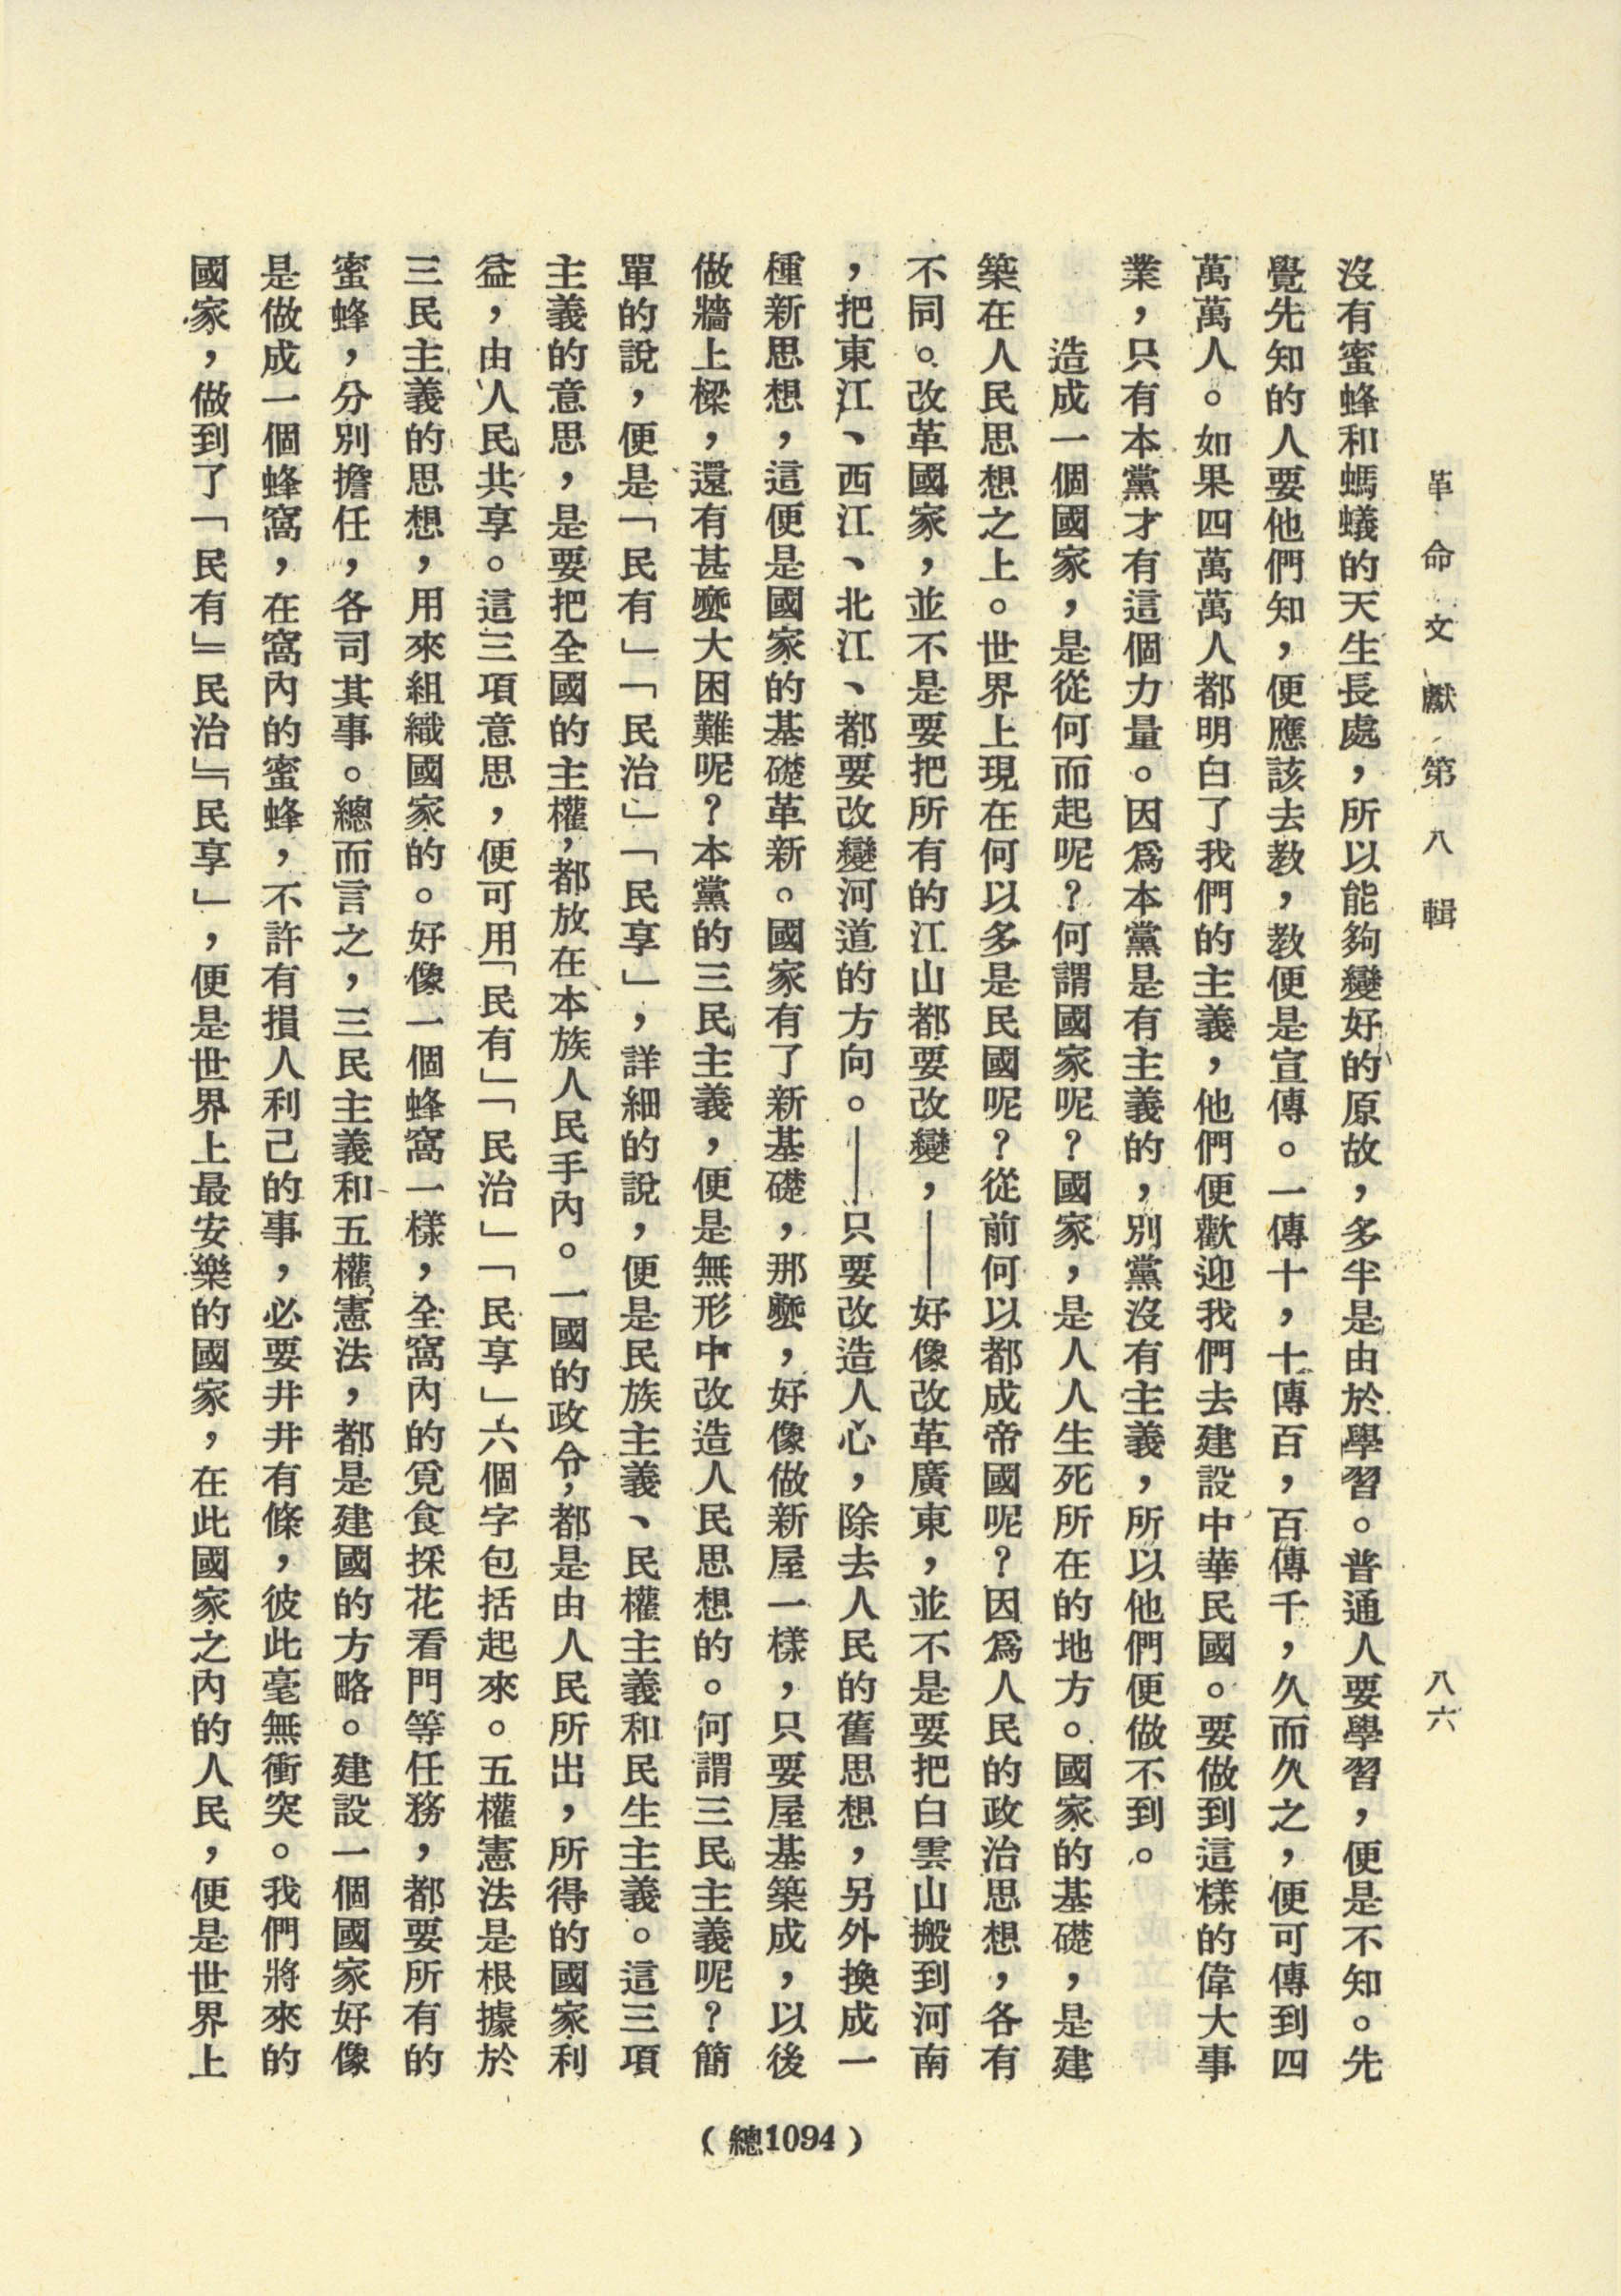 革命文獻第八輯
八六
沒有蜜蜂和螞蟻的天生長處，所以能夠變好的原故，多半是由於學習。普通人要學習，便是不知。先
覺先知的人要他們知，便應該去教，教便是宣傳。一傳十，十傳百，百傳千，久而久之，便可傳到四
萬萬人。如果四萬萬人都明白了我們的主義，他們便歡迎我們去建設中華民國。要做到這樣的偉大事
業，只有本黨才有這個力量。因爲本黨是有主義的，別黨沒有主義，所以他們便做不到。
造成一個國家，是從何而起呢？何謂國家呢？國家，是人人生死所在的地方。國家的基礎，是建
築在人民思想之上。世界上現在何以多是民國呢？從前何以都成帝國呢？因爲人民的政治思想，各有
不同。改革國家，並不是要把所有的江山都要改變，——好像改革廣東，並不是要把白雲山搬到河南
，把東江、西江、北江、都要改變河道的方向。——只要改造人心，除去人民的舊思想，另外換成一
種新思想，這便是國家的基礎革新。國家有了新基礎，那麼，好像做新屋一樣，只要屋基築成，以後
做牆上樑，還有甚麼大困難呢？本黨的三民主義，便是無形中改造人民思想的。何謂三民主義呢？簡
單的說，便是「民有」「民治」「民享」，詳細的說，便是民族主義、民權主義和民生主義。這三項
主義的意思，是要把全國的主權，都放在本族人民手內。一國的政令，都是由人民所出，所得的國家利
益，由人民共享。這三項意思，便可用「民有」「民治」「民享」六個字包括起來。五權憲法是根據於
三民主義的思想，用來組織國家的。好像一個蜂窩一樣，全窩內的覓食採花看門等任務，都要所有的
蜜蜂，分別擔任，各司其事。總而言之，三民主義和五權憲法，都是建國的方略。建設一個國家好像
是做成一個蜂窩，在窩內的蜜蜂，不許有損人利己的事，必要井井有條，彼此毫無衝突。我們將來的
國家，做到了「民有」「民治」「民享」，便是世界上最安樂的國家，在此國家之內的人民，便是世界上
（總1094）